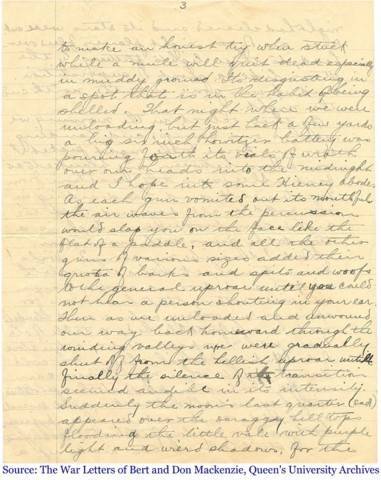 3
to make an honest try when stuck
while a mule will quit dead especially
in muddy ground. Its disgusting in
a spot that is in the habit of being
shelled. That night where we were
unloading but just back a few yards
a big six inch howitzer battery was
pouring forth its vials of wrath
over our heads into the midnight
and I hope into some Heiney abode.
As each gun vomited out its mouthful
the air waves from the percussion
would slap you on the face like the
flat of a paddle, and all the other
guns of various sizes added their
quota of barks and spits and woofs
to the general uproar until you could
not hear a person shouting in your ear.
Then as we unloaded and wound
our way back homeward through the
winding valley we were gradually
shut off from the hellish uproar until
finally the silence of the transition
seemed audible in its intensity
Suddenly the moon's last quarter
appeared over the scraggy hilltops
flooding the little vale with purple
light and weird shadows. for the
Source: The War Letters of Bert and Don Mackenzie, Queen's University Archives